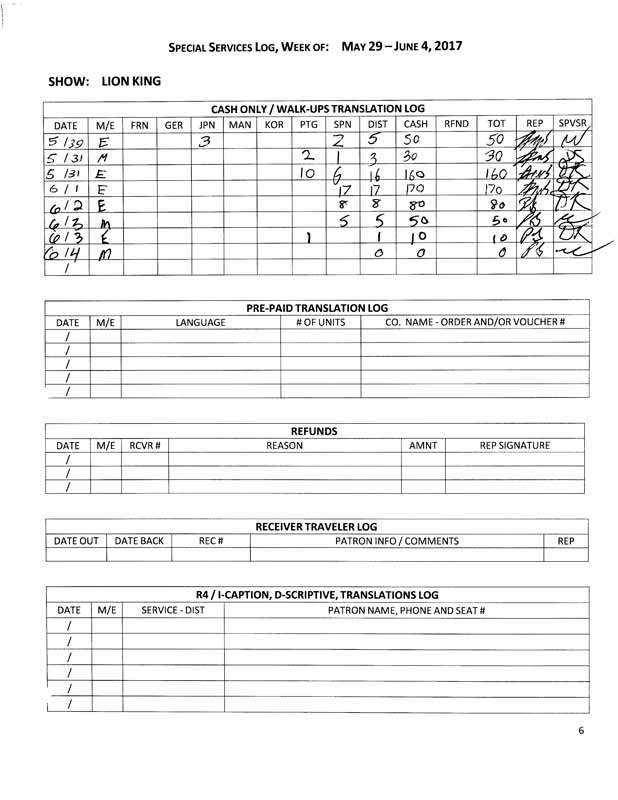 SPECIAL SERVICES LOG, WEEK OF: MAY 29 – JUNE 4, 2017
SHOW: LION KING
CASH ONLY / WALK-UPS TRANSLATION LOG
DATE M/E FRN GER JPN MAN KOR PTG SPN DIST CASH RFND TOT REP SPVSR
5/30 E 3 2 5 50 50
5/31 M 2 1 3 30 30 DS
5/31 E 10 6 16 160 160 DK
6/1 E 17 17 170 170 DK
6/2 E 8 8 80 80 PB DK
6/3 M 5 5 50 50 PB
6/3 E 1 1 10 10 PB DK
6/4 M 0 0 0 PB
/
PRE-PAID TRANSLATION LOG
DATE M/E LANGUAGE # OF UNITS CO. NAME - ORDER AND/OR VOUCHER #
/
/
/
/
/
REFUNDS
DATE M/E RCVR # REASON AMNT REP SIGNATURE
/
/
/
RECEIVER TRAVELER LOG
DATE OUT DATE BACK REC # PATRON INFO / COMMENTS REP
R4 / I-CAPTION, D-SCRIPTIVE, TRANSLATIONS LOG
DATE M/E SERVICE - DIST PATRON NAME, PHONE AND SEAT #
/
/
/
/
/
/
6